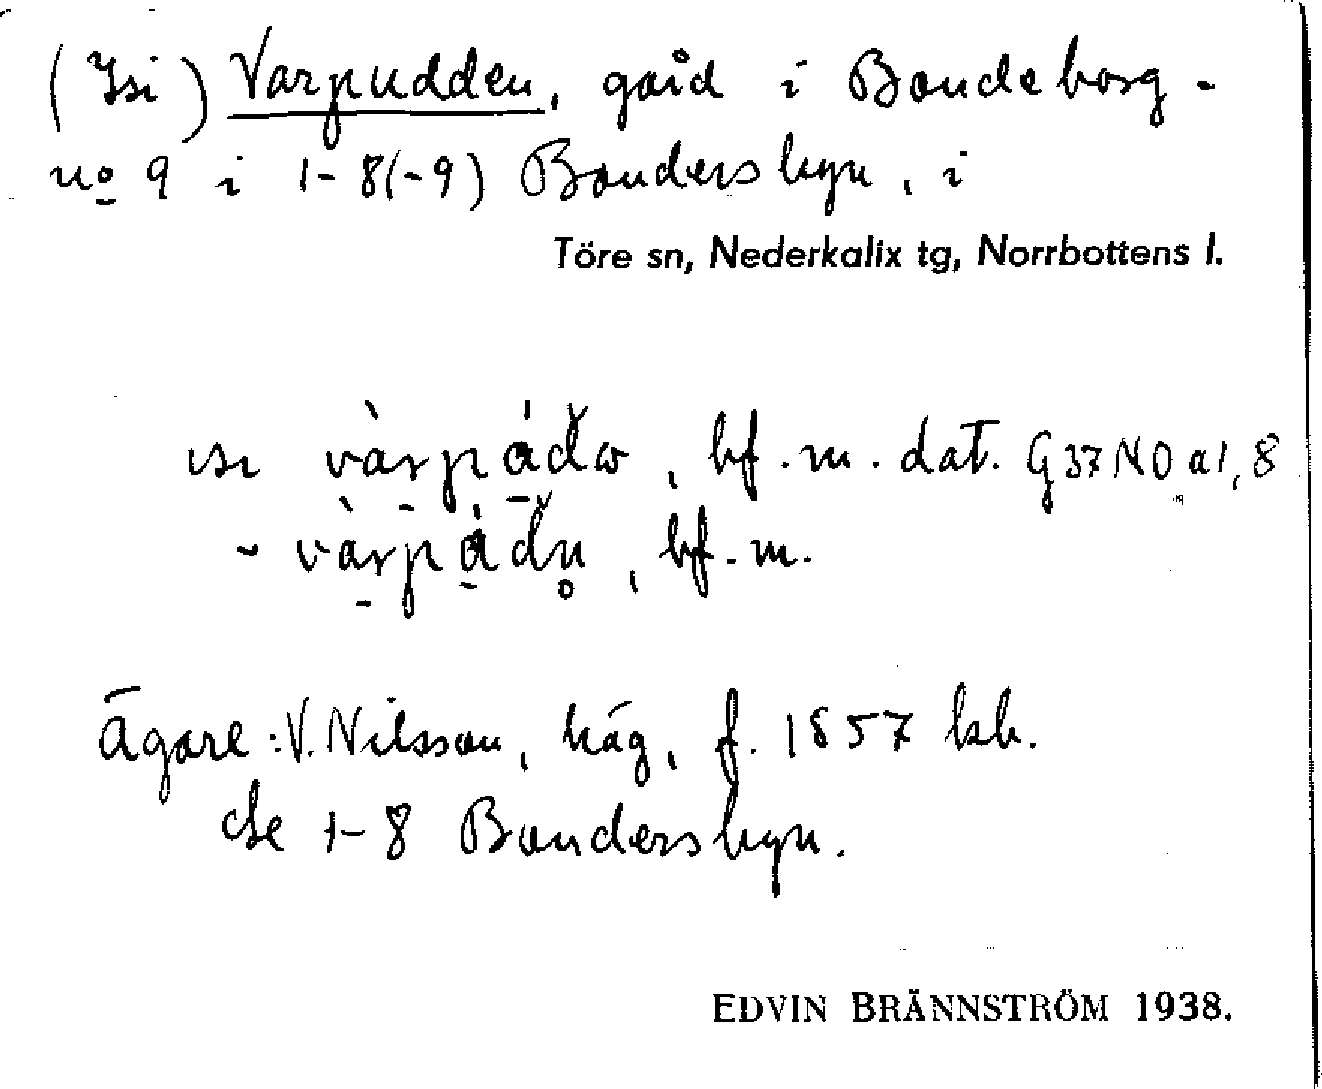 (Isi) Varpudden, gård i Bondeborg -
no 9 i 1-8(-9) Bondersbyn, i
Töre sn, Nederkalix tg, Norrbottens l.
bf. m. dat. G 37 NO a 1, 8
bf. m.
Ägare: V. Nilsson, häg, f. 1857 kb.
Se 1-8 Bondersbyn.
EDVIN BRÄNNSTRÖM 1938.